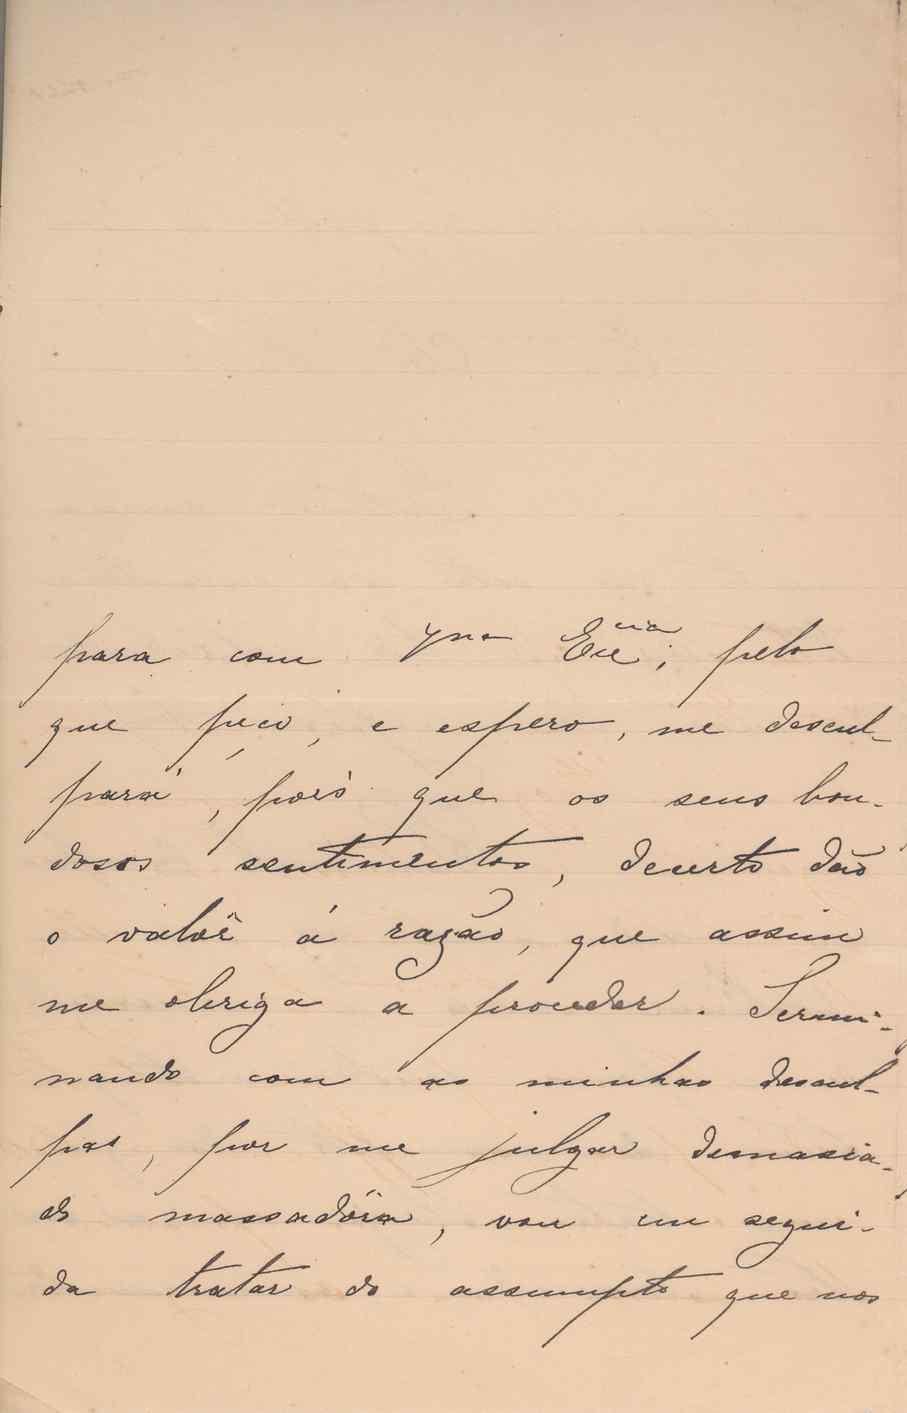 para com V. Excia; pelo
que peço, e espero, me descul-
pará, pois que os seus bon-
dosos sentimentos, decerto dão
o valôr á razão, que assim
me obriga a proceder. Termi-
nando com as minhas descul-
pas, por me julgar demasia-
do massadôra, vou em segui-
da tratar do assumpto que nos